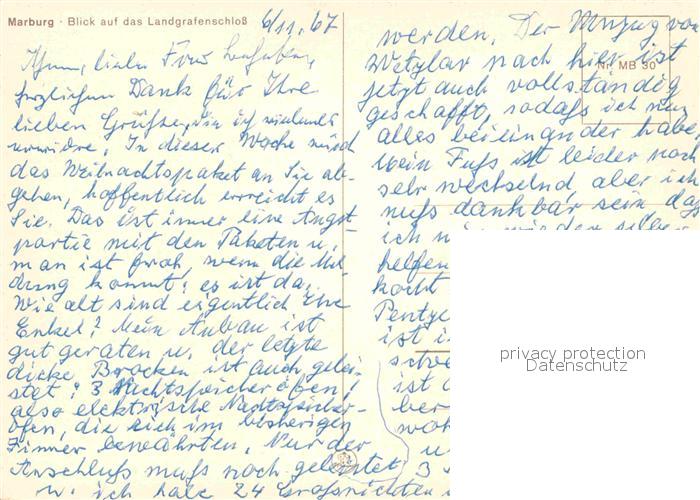 Marburg · Blick auf das Landgrafenschloß
6/11. 67
Ihnen, liebe Frau
herzlichen Dank für Ihre
lieben Grüße, die ich vielmals
erwidre. In dieser Woche wird
das Weihnachtspaket an Sie ab-
gehen, hoffentlich erreicht es
Sie. Das ist immer eine Angst-
partie mit den Paketen u.
man ist froh, wenn die Mel-
dung kommt: es ist da.
Wie alt sind eigentlich Ihre
Enkel? Mein Anbau ist
gut geraten u. der letzte
dicke Brocken ist auch gelei-
stet: 3 Nachtspeicheröfen,
also elektrische Nachtspeicher-
öfen, die sich im bisherigen
Zimmer bewährten. Nur der
Anschluß muß noch geleistet
u. ich habe 24 Großnichten
werden. Der Umzug von
Wetzlar nach hier ist
Nr. MB 30
jetzt auch vollständig
geschafft, sodaß ich nun
alles beieinander habe
Mein Fuß ist leider noch
sehr wechselnd, aber ich
muß dankbar sein, daß
ich mir wieder selber
helfen
kocht
ist
ist
ber
u
3
privacy protection
Datenschutz